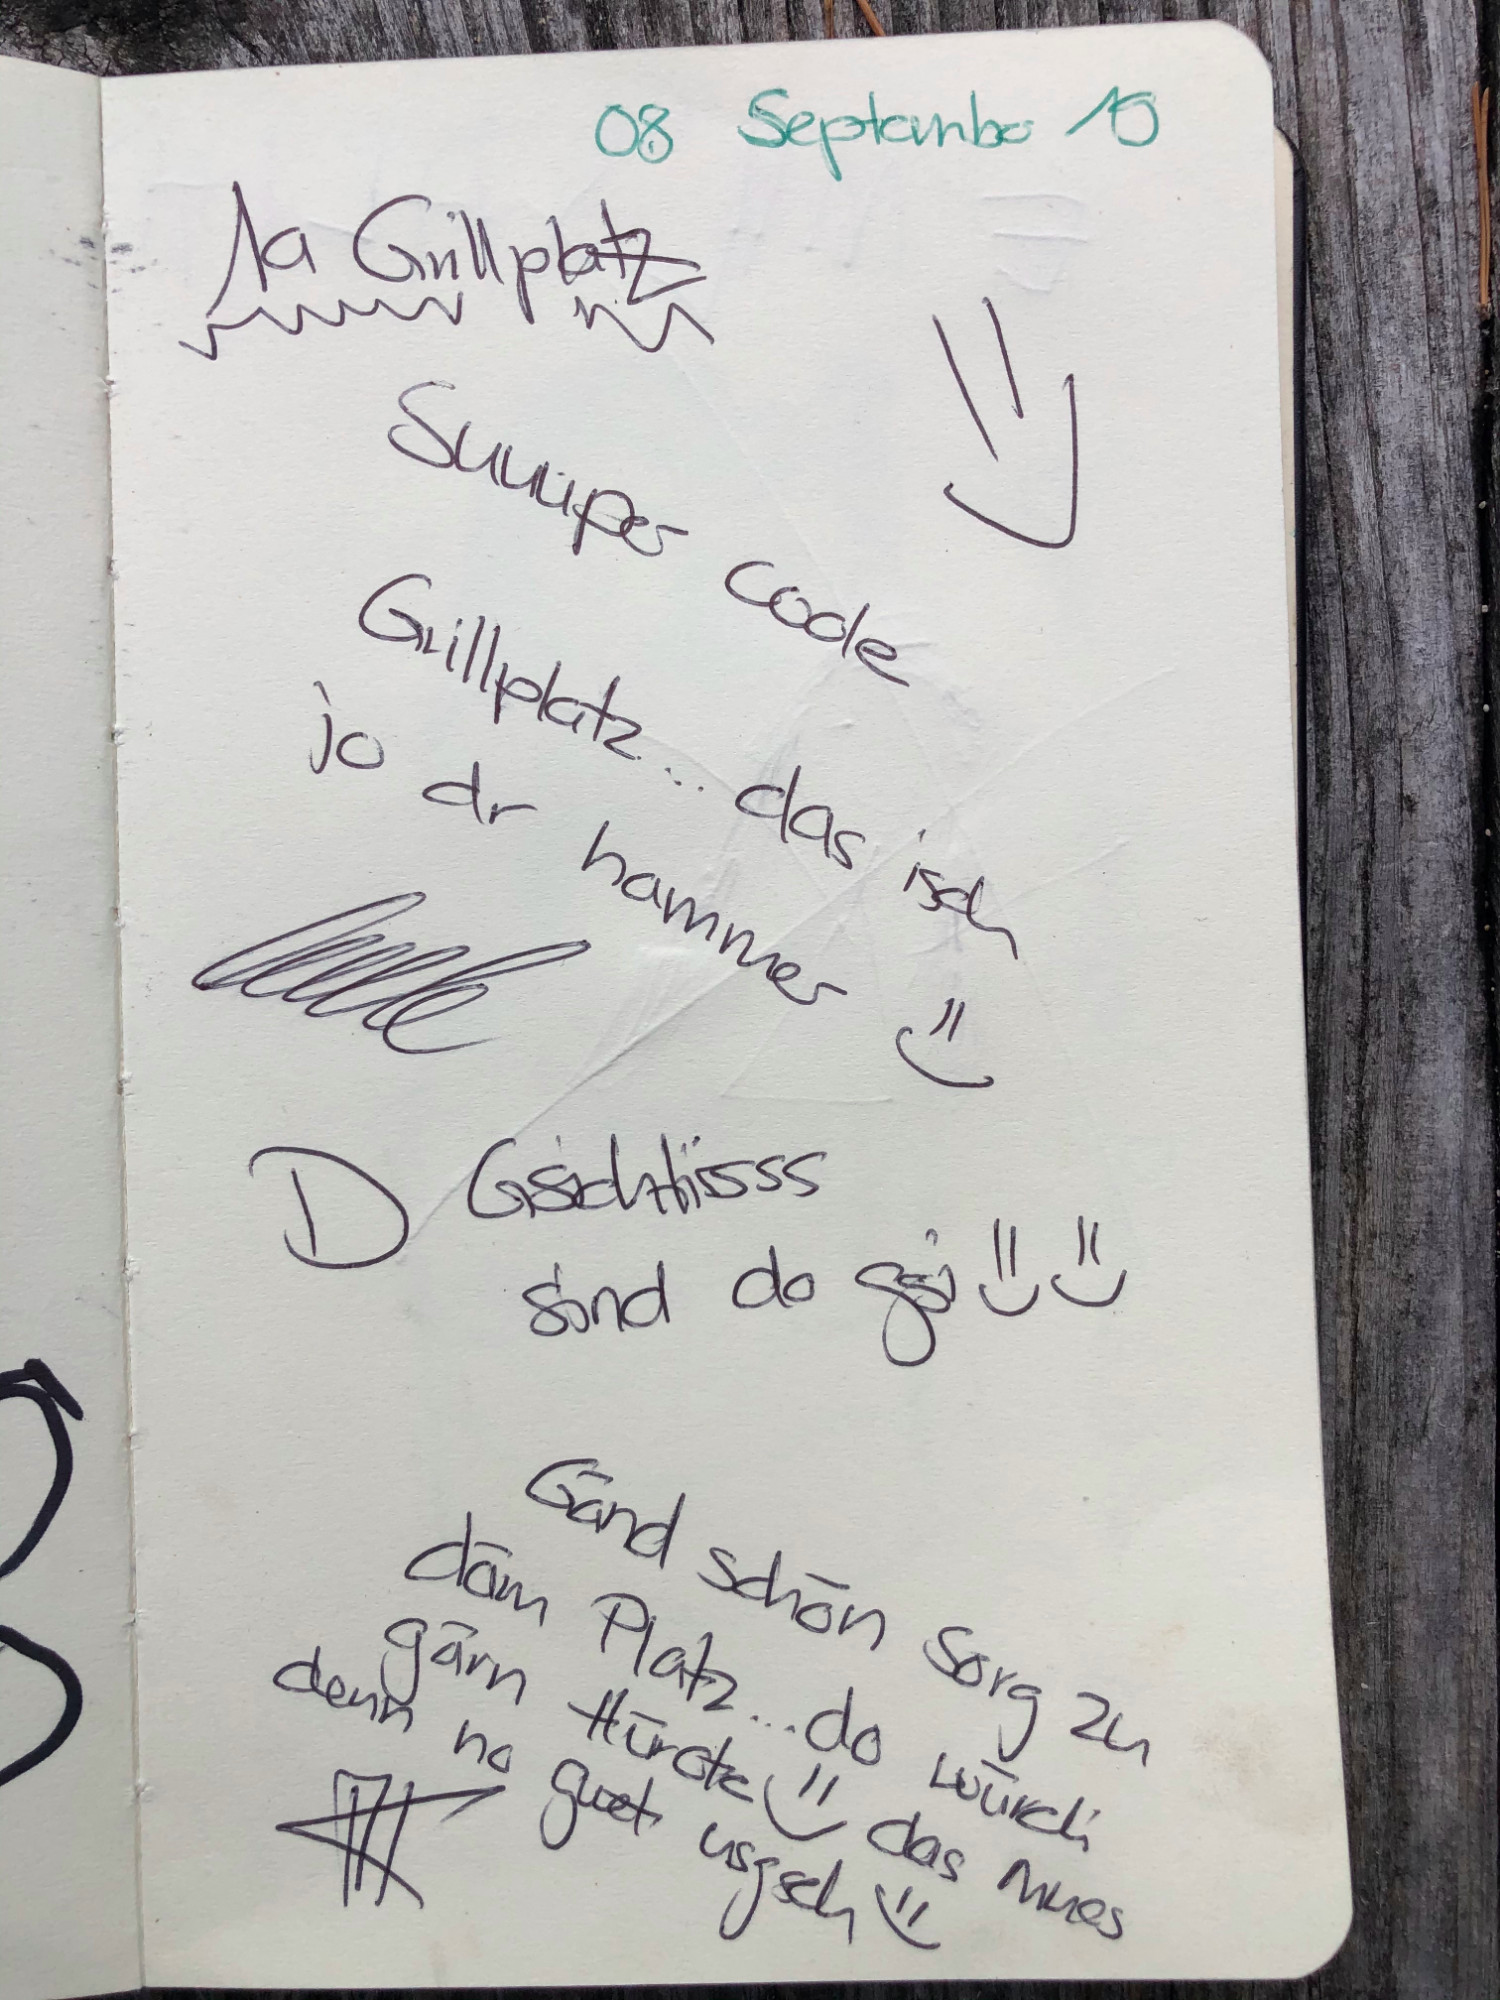 08 September 19
1a Grillplatz
Suuuper coole
Grillplatz... das isch
jo dr hammer
D Gschtiisss
sind do gsi
Gänd schön Sorg zu
däm Platz... do würdi
gärn Hürote das mues
denn no guet usgseh